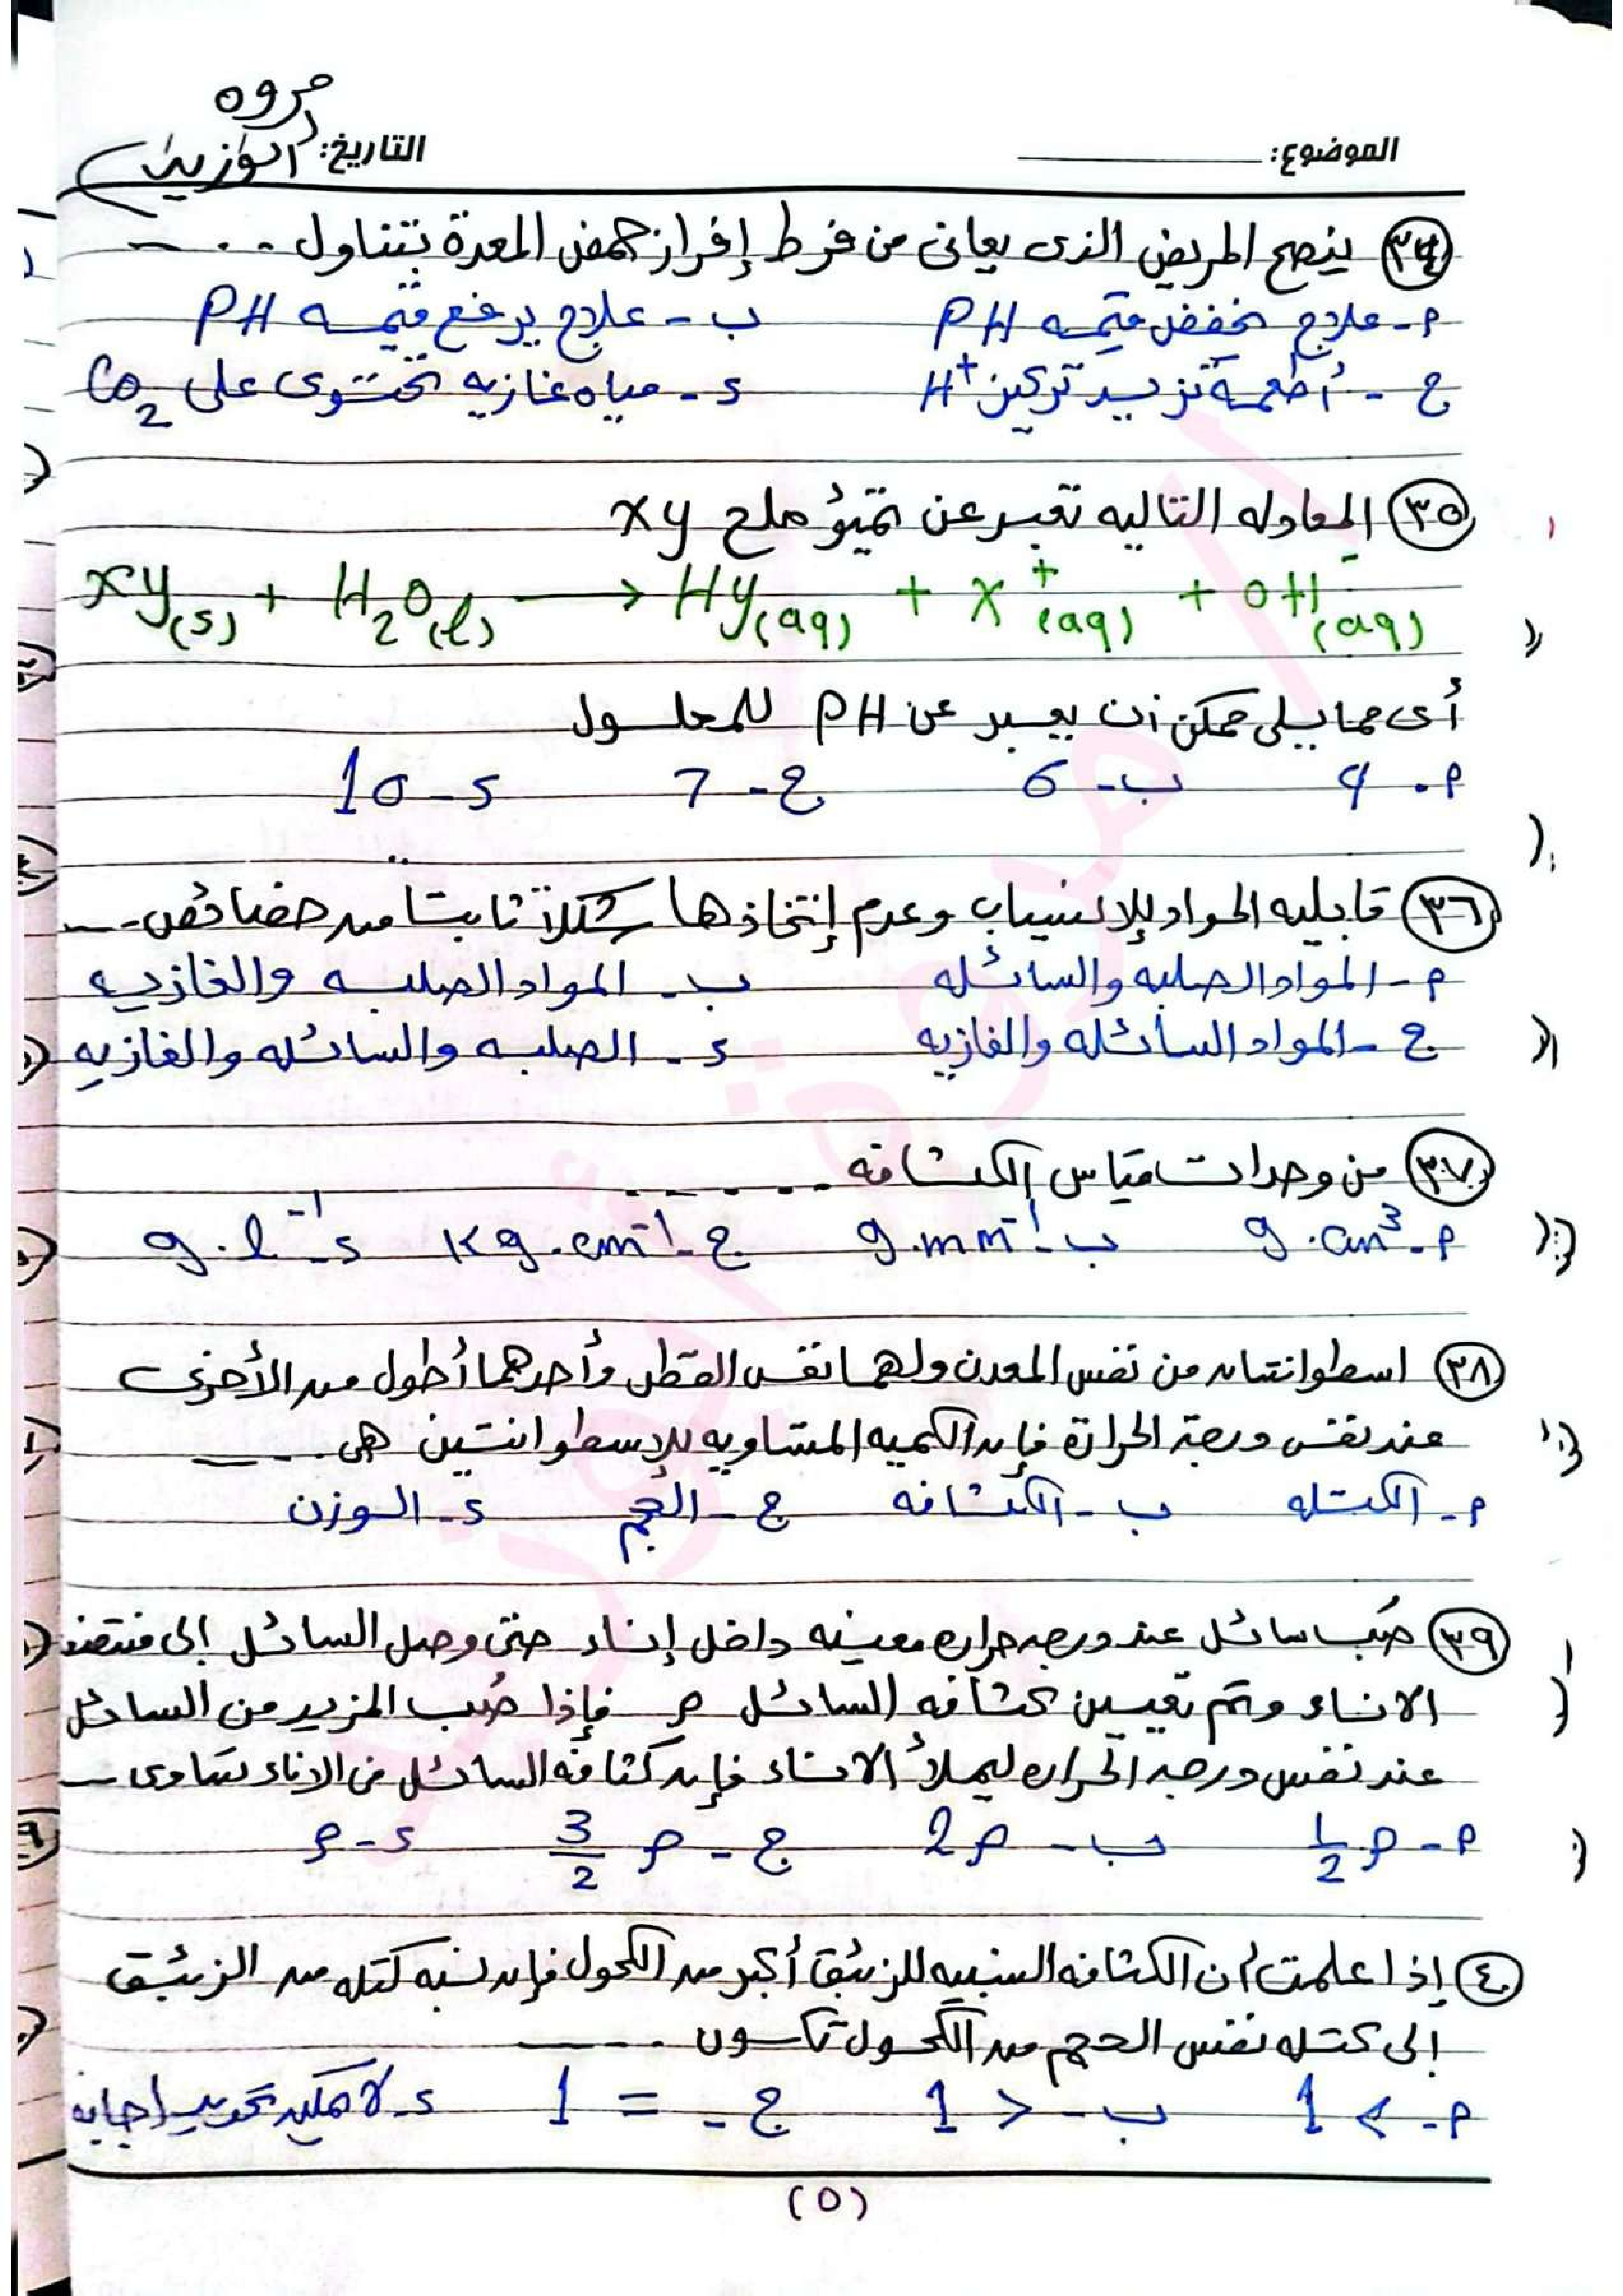 مروه
الموضوع: التاريخ:
٣٤ ينصح المريض الذى يعانى من فرط إفراز حمض المعدة بتناول ....
أ- علاج يخفض قيمه PH ب- علاج يرفع قيمه PH
ج- أطعمة تزيد تركيز H+ د- مياه غازيه تحتوى على CO2
٣٥ المعادله التاليه تعبر عن تميؤ ملح xy
xy(s) + H2O(l) → Hy(aq) + X+(aq) + OH-(aq)
أى مما يلى ممكن أن يعبر عن PH للمحلول
أ- 4 ب- 6 ج- 7 د- 10
٣٦ قابليه المواد للإنسياب وعدم إتخاذها شكلاً ثابتا من خصائص....
أ- المواد الصلبه والسائله ب- المواد الصلبه والغازيه
ج- المواد السائله والغازيه د- الصلبه والسائله والغازيه
٣٧ من وحدات قياس الكثافه ......
أ- g.cm3 ب- g.mm-1 ج- Kg.cm-1 د- g.l-1
٣٨ اسطوانتان من نفس المعدن ولهما نفس القطر وأحدهما أطول من الأخرى
عند نفس درجة الحرارة فإن الكميه المتساويه للإسطوانتين هى ....
أ- الكتله ب- الكثافه ج- الحجم د- الوزن
٣٩ صُب سائل عند درجه حراره معينه داخل إناء حتى وصل السائل إلى منتصف
الاناء وتم تعيين كثافه السائل ρ فإذا صُب المزيد من السائل
عند نفس درجه الحراره ليملأ الاناء فإن كثافه السائل فى الاناء تساوى ....
أ- 1/2 ρ ب- 2ρ ج- 3/2 ρ د- ρ
٤٠ إذا علمت أن الكثافه النسبيه للزئبق أكبر من الكحول فإن نسبه كتله من الزئبق
إلى كتله نفس الحجم من الكحول تكون ......
أ- < 1 ب- > 1 ج- = 1 د- لا يمكن تحديد إجابه
(٥)